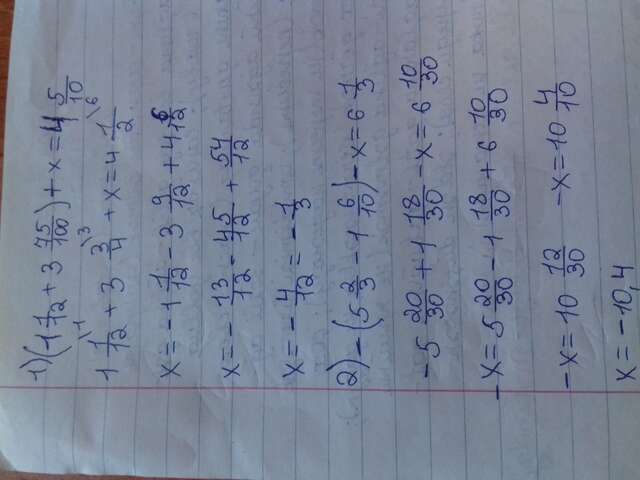 1) (1 1/12 + 3 75/100) + x = 4 5/10
1 1/12 \1 + 3 3/4 \3 + x = 4 1/2 \6
x = -1 1/12 - 3 9/12 + 4 6/12
x = - 13/12 - 45/12 + 54/12
x = - 4/12 = - 1/3
2) -(5 2/3 - 1 6/10) - x = 6 1/3
-5 20/30 + 1 18/30 - x = 6 10/30
-x = 5 20/30 - 1 18/30 + 6 10/30
-x = 10 12/30 -x = 10 4/10
x = -10,4